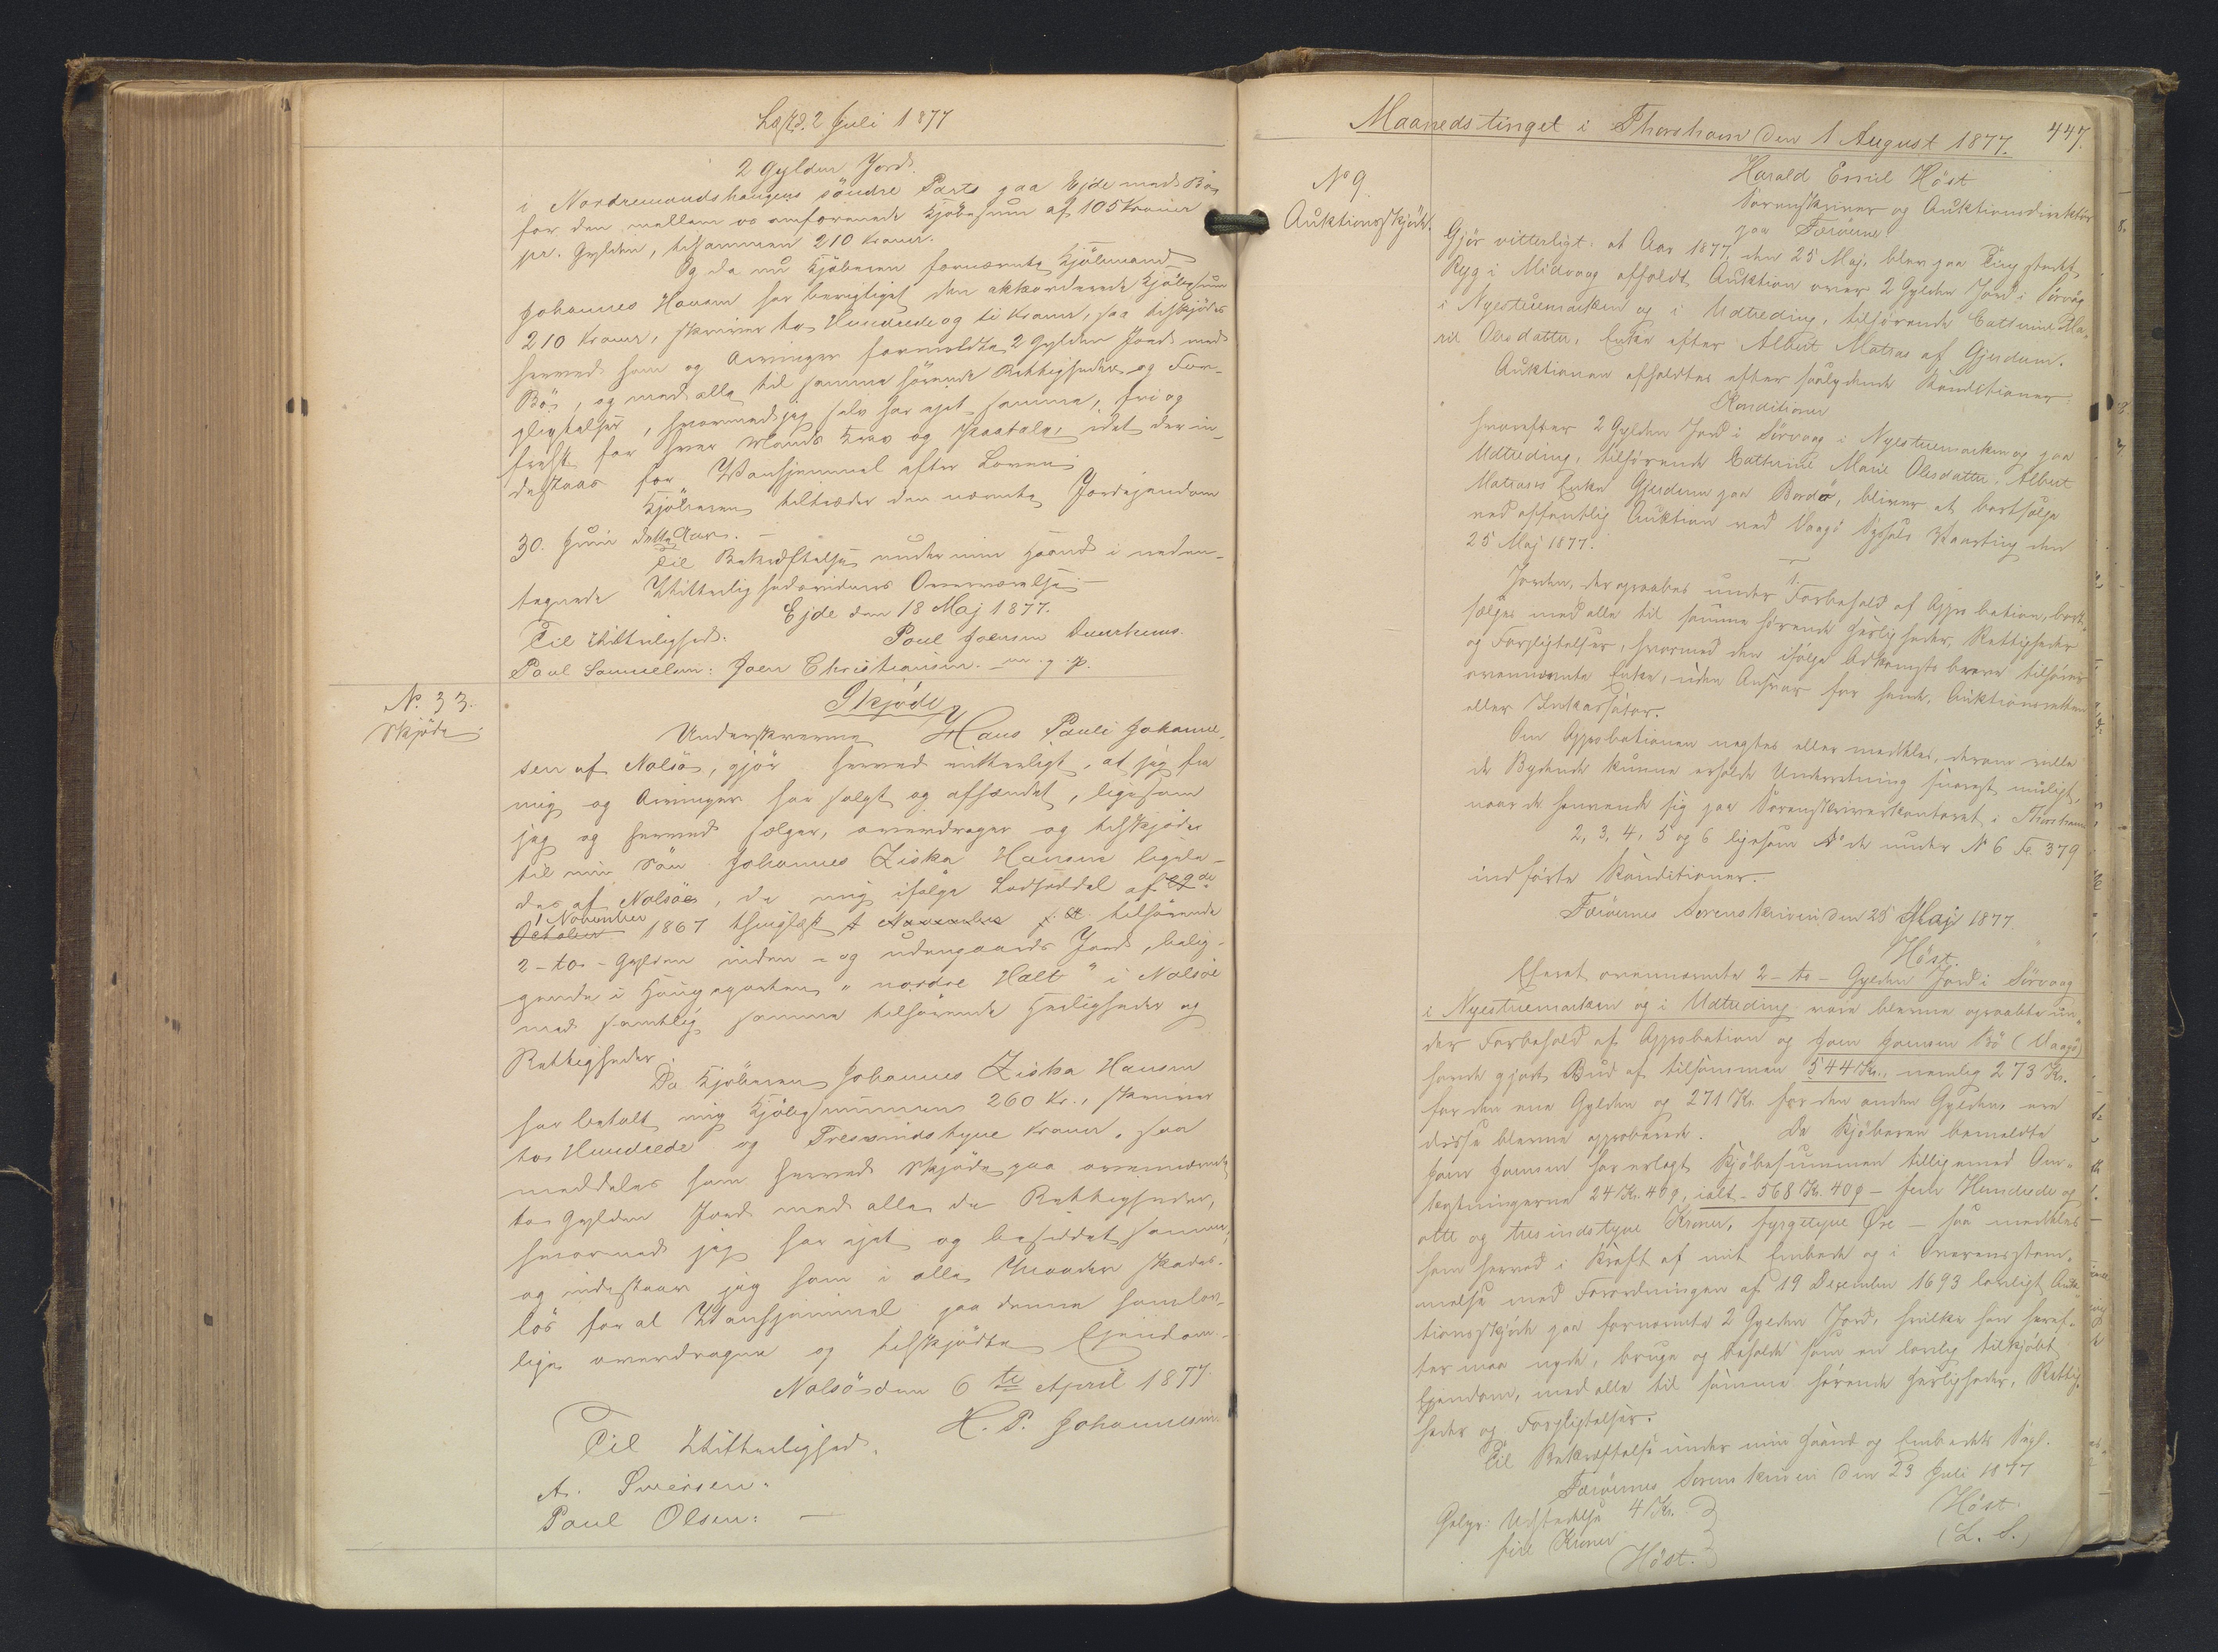 Læst d. 2 Juli 1877
2 Gylden Jord
i Nordremandshaugens søndre Parts paa Ejde med Bøs
for den mellem os omforenede Kjøbesum af 105 Kroner
pr. Gylden, tilsammen 210 Kroner.
Og da nu Kjøberen fornævnte Kjøbmand
Johannes Hansen har berigtiget den akkorderede Kjøbesum
210 Kroner, skriver to Hundrede og ti Kroner, saa tilskjødes
herved ham og Arvinger formeldte 2 Gylden Jord med
Bøs, og med alle til samme hørende Rettigheder og For-
pligtelser, hvormed jeg selv har ejet samme, fri og
frelst for hver Mands Krav og Paatale, idet der in-
destaaes for Vanhjemmel efter Loven.
Kjøberen tiltræder den nævnte Jordejendom
30. Juni dette Aar. –
Til Bekræftelse under min Haand i neden-
tegnede Vitterlighedsvidners Overværelse –
Ejde den 18 Maj 1877.
Til Vitterlighed: Poul Joensen
Poul Samuelsen: Joen Christiansen. m. f. p.
No. 33.
Skjøde
Skjøde
Underskrevne Hans Pauli Johanne-
sen af Nolsø, gjør herved vitterligt, at jeg fra
mig og Arvinger har solgt og afhændet, ligesom
jeg og herved sælger, overdrager og tilskjøder
til min Søn Johannes Ziska Hansen ligele-
des af Nolsø, de mig ifølge Lodseddel af 29de
1 November
October 1867 thinglæst 1 November tilhørende
2 – to – Gylden inden- og udengaards Jord, belig-
gende i Haugeparten "nordre Halt" i Nolsø
med samtlig samme tilhørende Herligheder og
Rettigheder.
Da Kjøberen Johannes Ziska Hansen
har betalt mig Kjøbesummen 260 Kr., skriver
to Hundrede og Tresindstyve Kroner, saa
meddeles ham herved Skjøde paa ovennævnte
to Gylden Jord med alle de Rettigheder,
hvormed jeg har ejet og besiddet samme,
og indestaaer jeg ham i alle Maader skades-
løs for al Vanhjemmel paa denne ham lov-
lige overdragne og tilskjødte Ejendom. –
Nolsø den 6te April 1877
H. P. Johannesen
Til Vitterlighed.
A. Sveisen.
Poul Olsen: –
Maanedstinget i Thorshavn den 1 August 1877. 447.
No 9
Auktionsskjøde.
Harald Emil Høst
Sorenskriver og Auktionsdirektør
paa Færøerne
Gjør vitterligt: at Aar 1877, den 25 Maj, blev paa Tingstedet
Ryg i Midvaag afholdt Auktion over 2 Gylden Jord i Sørvaag
i Nyestuemarken og i Udtreding, tilhørende Cattrine Ma-
rie Olesdatter, Enke efter Albert Matras af Gjerdum.
Auktionen afholdtes efter saalydende Konditioner:
Konditioner
hvorefter 2 Gylden Jord i Sørvaag i Nyestuemarken og paa
Udtreding, tilhørende Cattrine Marie Olesdatter, Albert
Matrases Enke Gjerdum paa Bordø, bliver at bortsælge
ved offentlig Auktion ved Vaagø Syssels Vaarting den
25 Maj 1877.
1.
Jorden, der opraabes under Forbehold af Approbation, bort-
sælges med alle til samme hørende Herligheder, Rettigheder
og Forpligtelser, hvormed den ifølge Adkomstbreve tilhører
ovennævnte Enke, uden Ansvar for hende, Auktionsretten
eller Inkassator.
Om Approbationen negtes eller meddeles, derom ville
de Bydende kunne erholde Underretning snarest muligt,
naar de henvende sig paa Sorenskriverkontoret i Thorshavn
2, 3, 4, 5 og 6 ligesom de under N 6 Fo. 379
indførte Konditioner.
Færøernes Sorenskriveri den 25 Maj 1877
Høst.
Efterat ovennævnte 2 – to – Gylden Jord i Sørvaag
i Nyestuemarken og i Udtreding vare blevne opraabte un-
der Forbehold af Approbation og Joen Joensen Bø (Vaagø)
havde gjort Bud af tilsammen 544 Kr., nemlig 273 Kr.
for den ene Gylden og 271 Kr. for den anden Gylden, ere
disse blevne approberede. Da Kjøberen bemeldte
Joen Joensen har erlagt Kjøbesummen tilligemed Om-
kostningerne 24 Kr. 40 ø, ialt – 568 Kr. 40 ø – fem Hundrede og
otte og tresindstyve Kroner, fyrgetyve Øre – saa meddeles
ham herved i Kraft af mit Embede og i Overensstem-
melse med Forordningen af 19 December 1693 lovligt Auk-
tionsskjøde paa fornævnte 2 Gylden Jord, hvilke han heref-
ter maa nyde, bruge og beholde som en lovlig tilkjøbt
Ejendom, med alle til samme hørende Herligheder, Rettig-
heder og Forpligtelser.
Til Bekræftelse under min Haand og Embedets Segl.
Færøernes Sorenskriveri den 23 Juli 1877
Høst.
(L. S.)
Gebyr: Udstedelse 4 Kr.
fire Kroner
Høst.